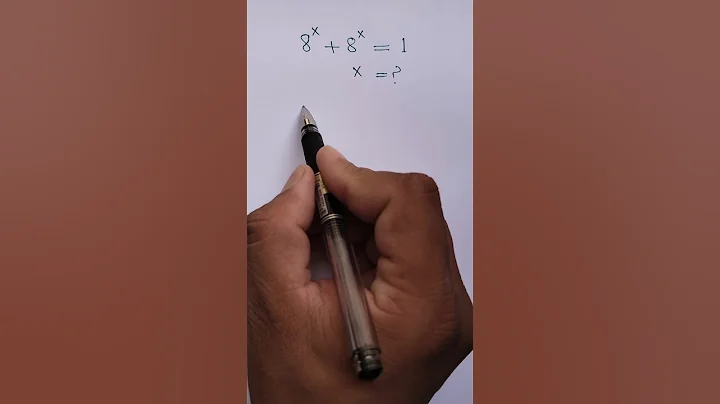 8^x + 8^x = 1
x = ?